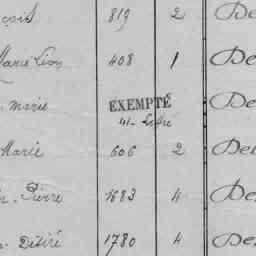 819 2 De
Marie Léon 408 1 De
Marie EXEMPTÉ De
Marie 606 2 De
Pierre 1683 4 De
Désiré 1780 4 De